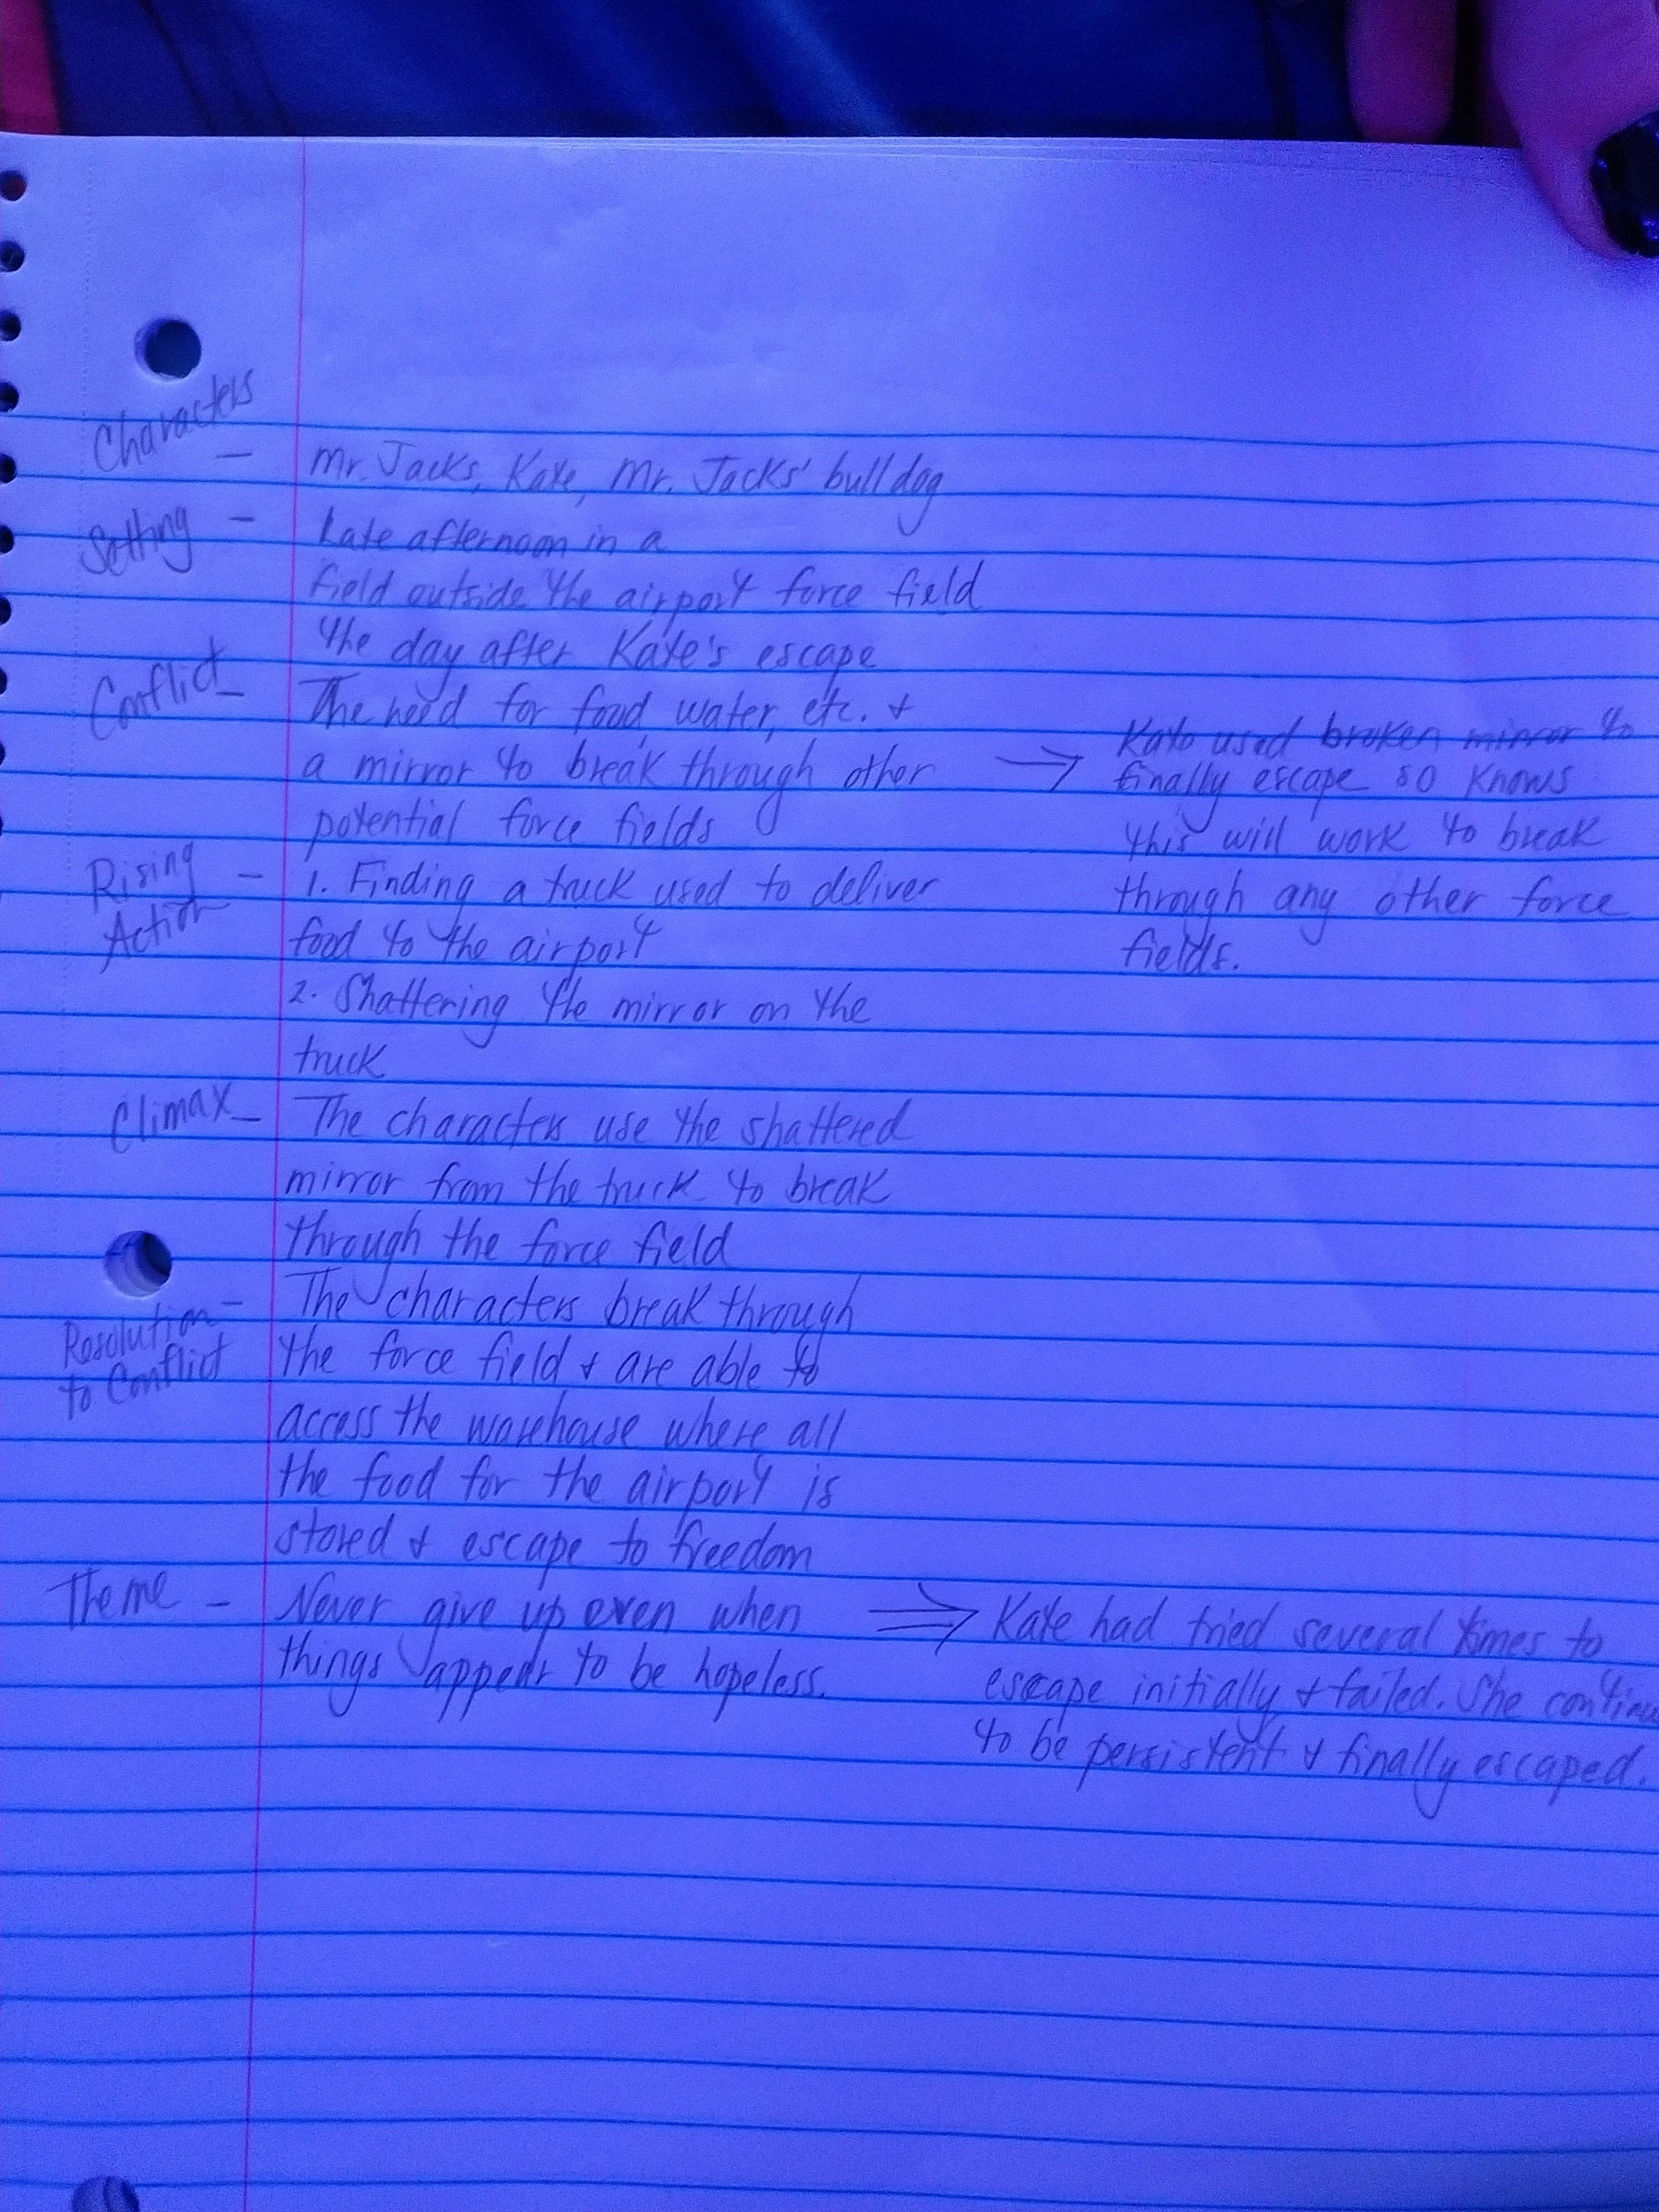 Characters
- Mr. Jacks, Kate, Mr. Jacks' bulldog
Setting - Late afternoon in a
field outside the airport force field
the day after Kate's escape
Conflict - The need for food, water, etc. &
a mirror to break through other
potential force fields
→ Kate used broken mirror to
finally escape so knows
this will work to break
through any other force
fields.
Rising
Action - 1. Finding a truck used to deliver
food to the airport
2. Shattering the mirror on the
truck
Climax - The characters use the shattered
mirror from the truck to break
through the force field
Resolution -
to Conflict
The characters break through
the force field & are able to
access the warehouse where all
the food for the airport is
stored & escape to freedom
Theme - Never give up even when
things appear to be hopeless.
⇒ Kate had tried several times to
escape initially & failed. She continu
to be persistent & finally escaped.